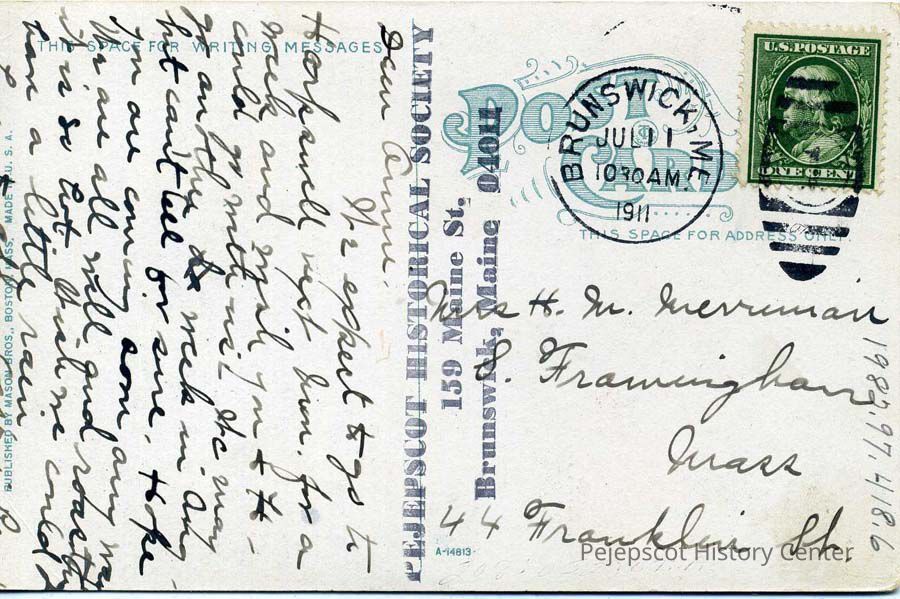 THIS SPACE FOR WRITING MESSAGES
Dear Annie.
We expect to go to
Harpswell next Mon. for a
week and wish you + H-
could go with us. We may
go another week in Aug
but can't tell for sure. Hope
you are coming soon any way
We are all well and roasting
it is so hot. Wish we could
have a little rain
PUBLISHED BY MASON BROS., BOSTON, MASS. MADE IN U. S. A.
PEJEPSCOT HISTORICAL SOCIETY
159 Maine St.
Brunswick, Maine 04011
A-14813
POST
CARD
BRUNSWICK, ME.
JUL 11
1030 AM
1911
U.S. POSTAGE
ONE CENT
THIS SPACE FOR ADDRESS ONLY.
Mrs H. M. Merriman
S. Framingham
Mass
44 Franklin St.
1987.97.418.6
Pejepscot History Center